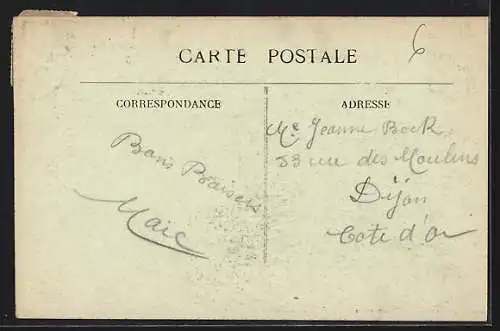 CARTE POSTALE
6
CORRESPONDANCE
ADRESSE
Bons Baisers
Me Jeanne Bock
33 rue des Moulins
Dijon
Cote d'Or